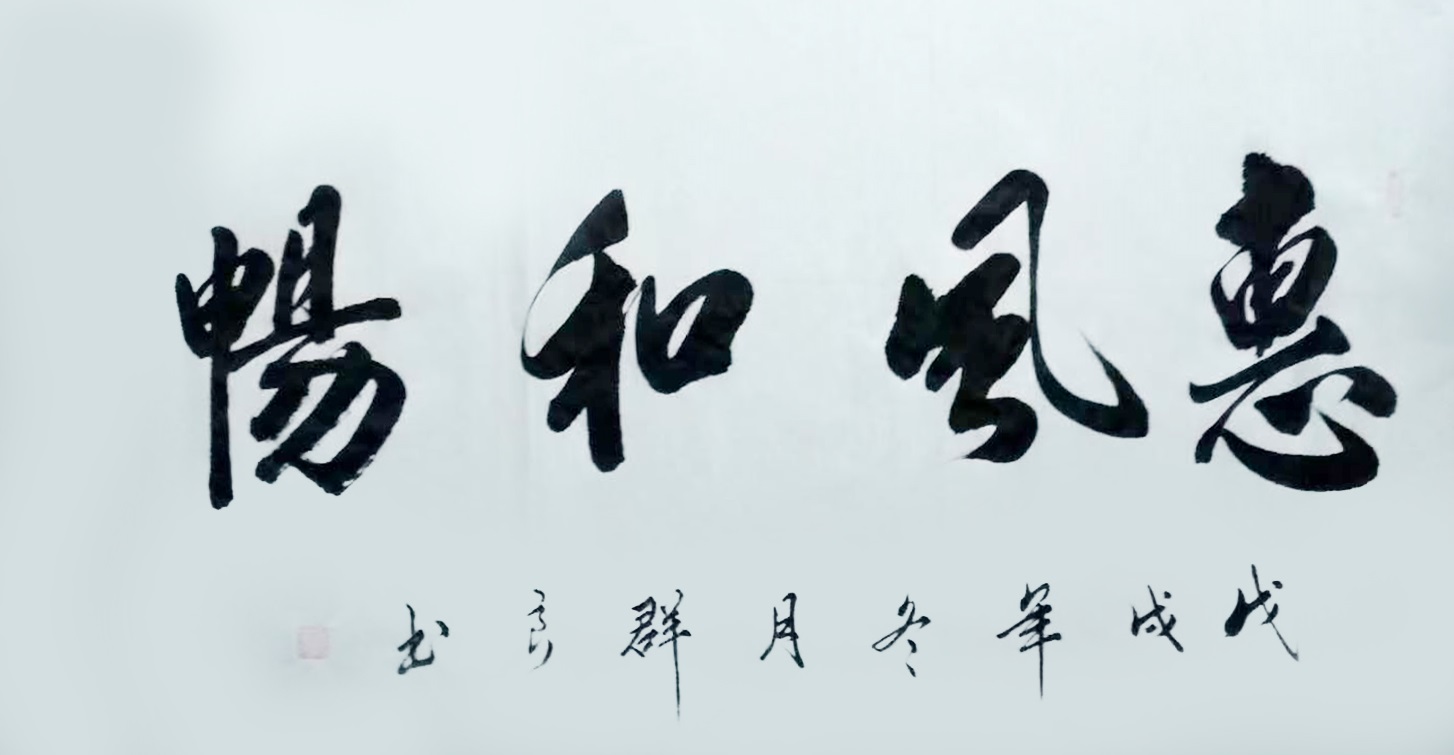 惠風和暢
戊戌年冬月群良书